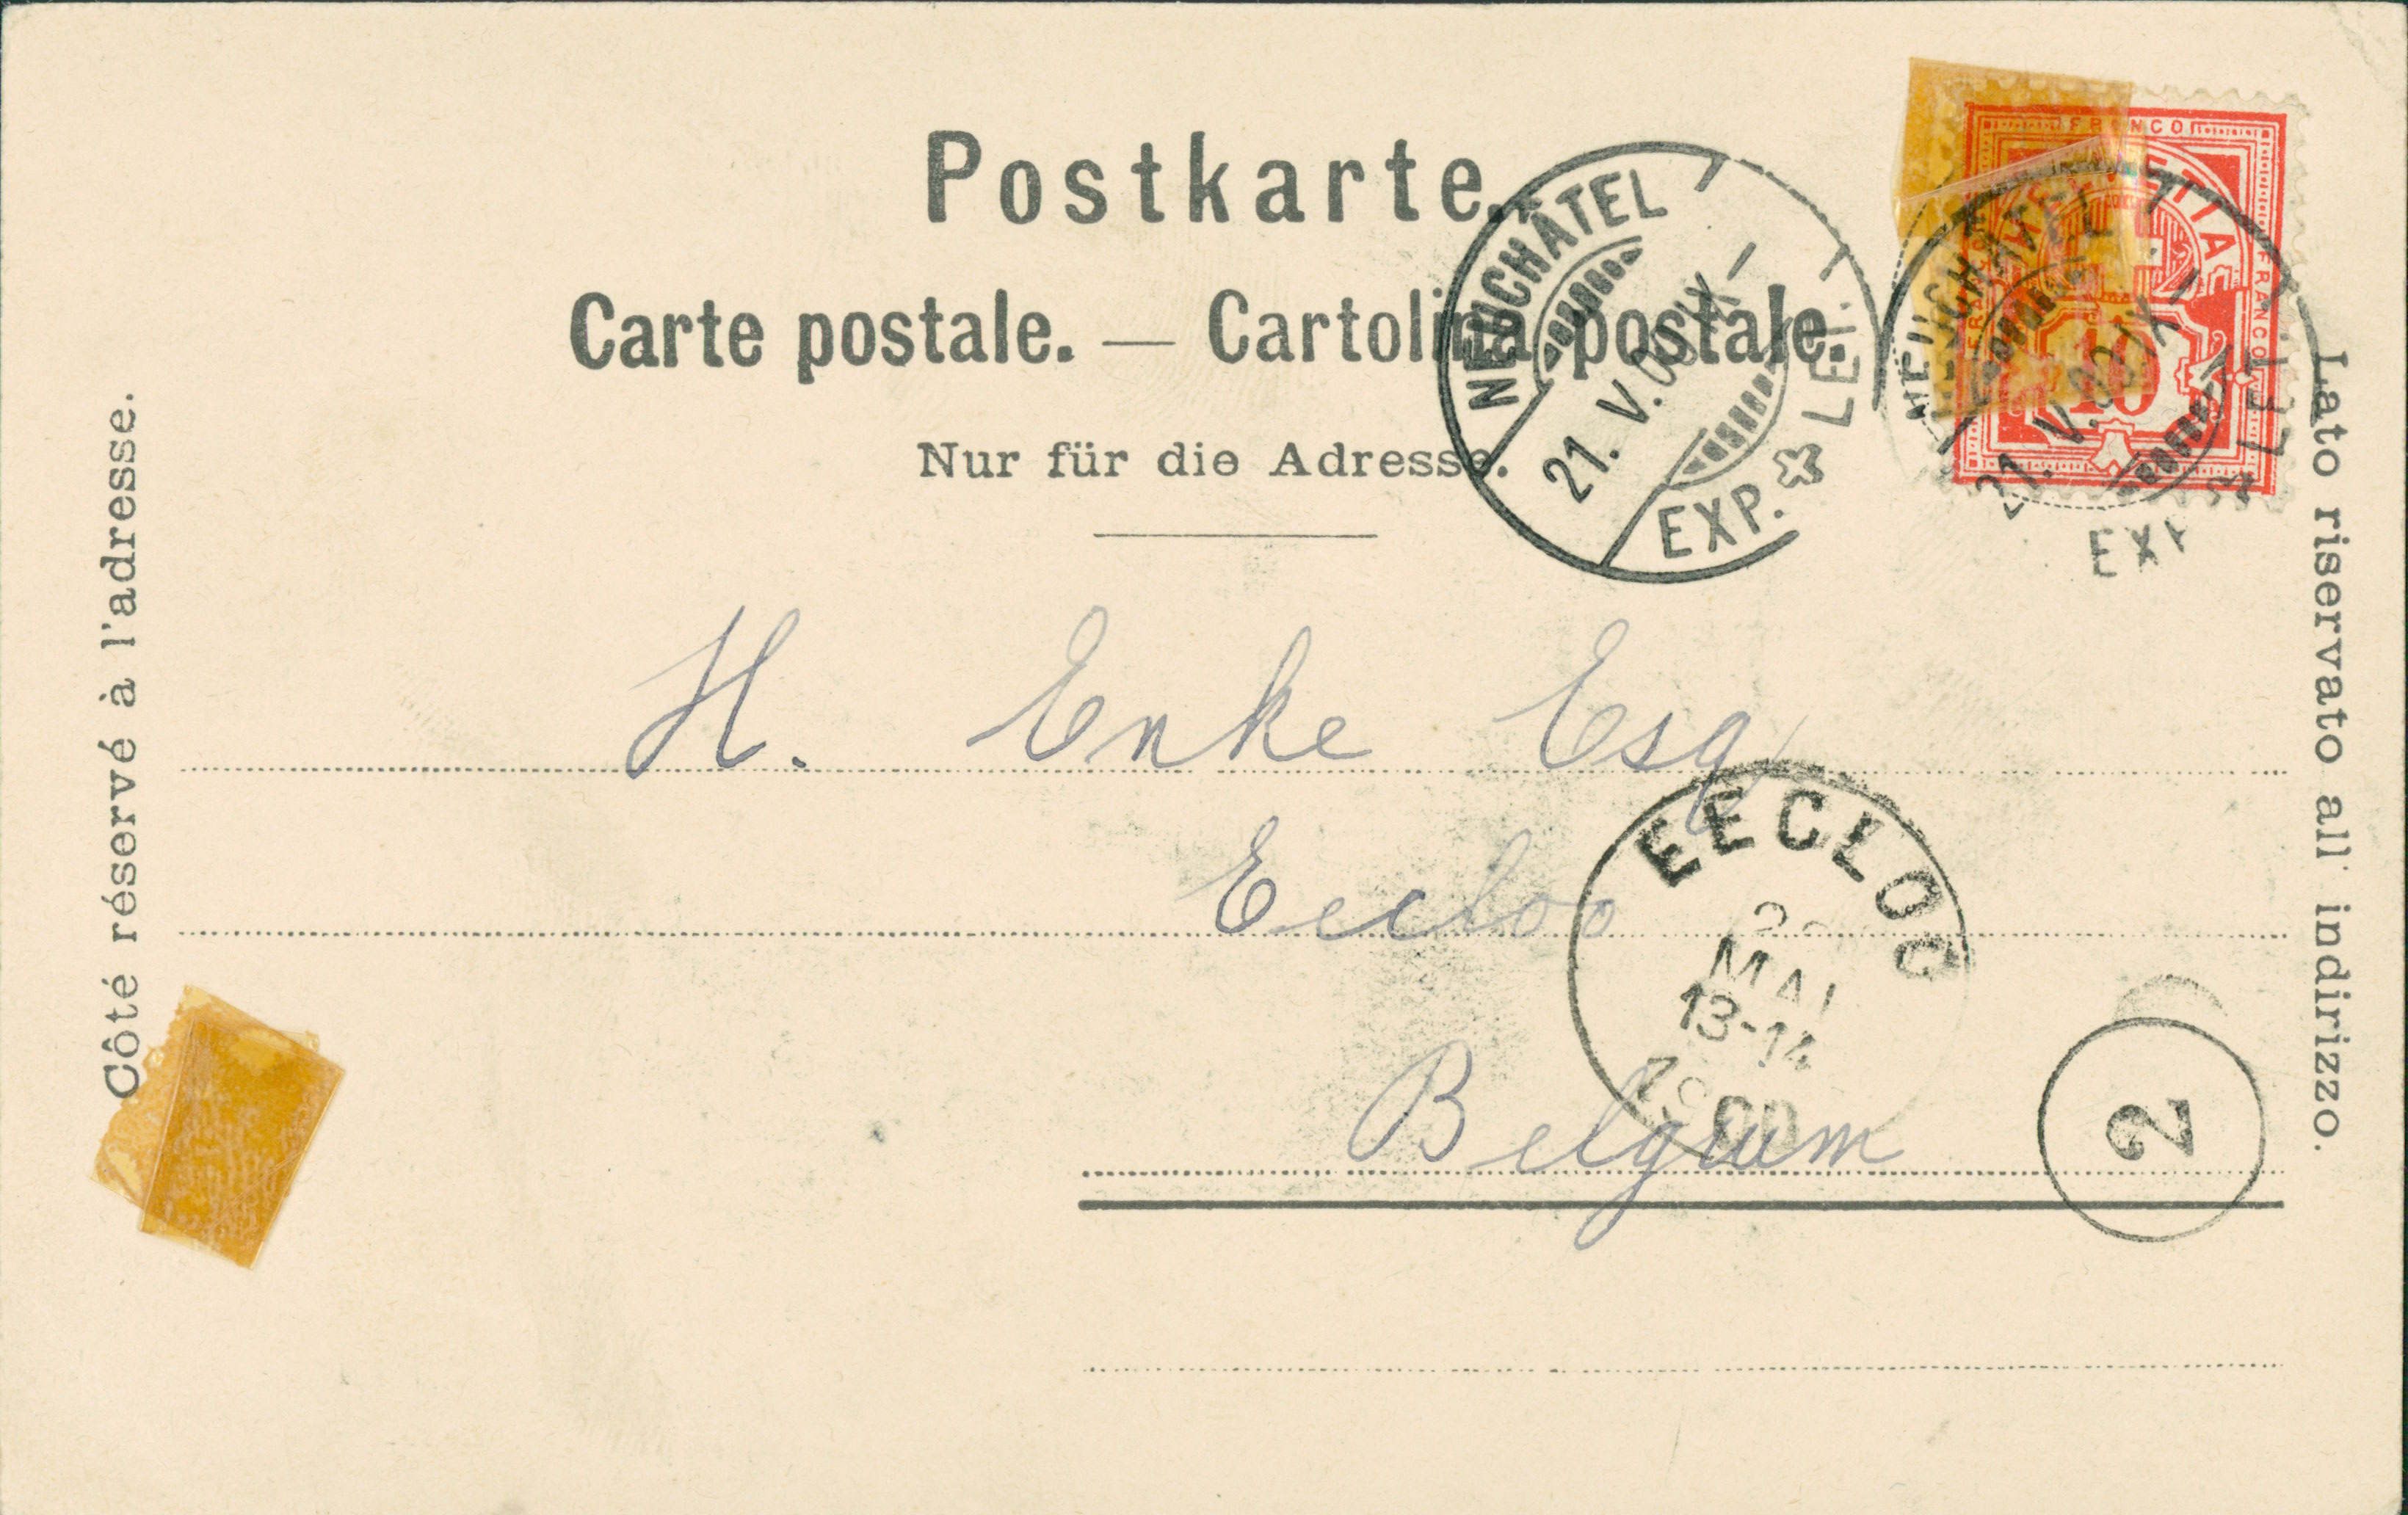 Postkarte.
Carte postale. — Cartolina postale.
Nur für die Adresse.
Côté réservé à l'adresse.
Lato riservato all' indirizzo.
FRANCO
HELVETIA
FRANCO
10
NEUCHÂTEL
21. V.00 IX–
EXP. LET.
NEUCHÂTEL
21. V.00 IX–
LET.
H. Enke Esq
Eecloo
Belgium
EECLOO
MAI
13-14
1900
2